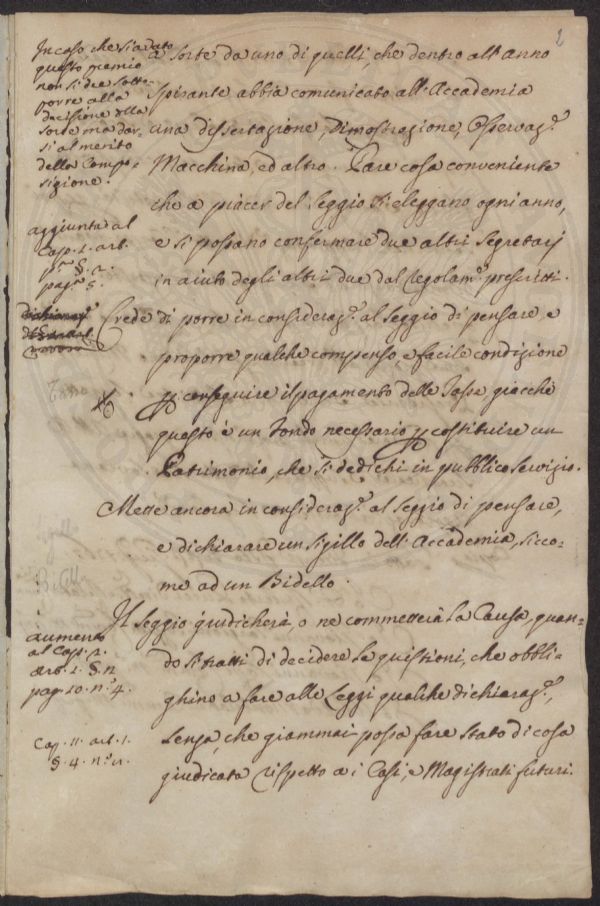 2
In caso, che sia dato
questo premio
non si dee sotto-
porre alla
decisione della
sorte ma dar-
si al merito
della Compo-
sizione.
a sorte da uno di quelli, che dentro all'Anno
spirante abbia comunicato all'Accademia
una dissertazione, Dimostrazione, Osservaz.e
Macchina, ed altro. Pare cosa conveniente
che a piacer del Seggio si eleggano ogni anno,
e si possano confermare due altri Segretarj
in aiuto degli altri due dal Regolam.o prescritti.
aggiunta al
Cap. 1. art.
p.mo §. 2.
pag.
Crede di porre in consideraz.e al Seggio di pensare, e
proporre qualche compenso, e facile condizione
p conseguire il pagamento delle Tasse giacchè
questo è un Fondo necessario p costituire un
Patrimonio, che si dedichi in pubblico servizio.
Mette ancora in consideraz.e al Seggio di pensare,
e dichiarare un sigillo dell'Accademia, sicco-
me ad un Bidello.
Il Seggio giudicherà, o ne commetterà la Causa, quan-
do si tratti di decidere le quistioni, che obbli-
ghino a fare alle Leggi qualche dichiaraz.e,
senza, che giammai possa fare stato di cosa
giudicata rispetto a i Casi, e Magistrati futuri.
aumento
al Cap. 2.
art. 1. §.
pag. 10. n.o 4.
Cap. 11. art. 1.
§. 4. n.o